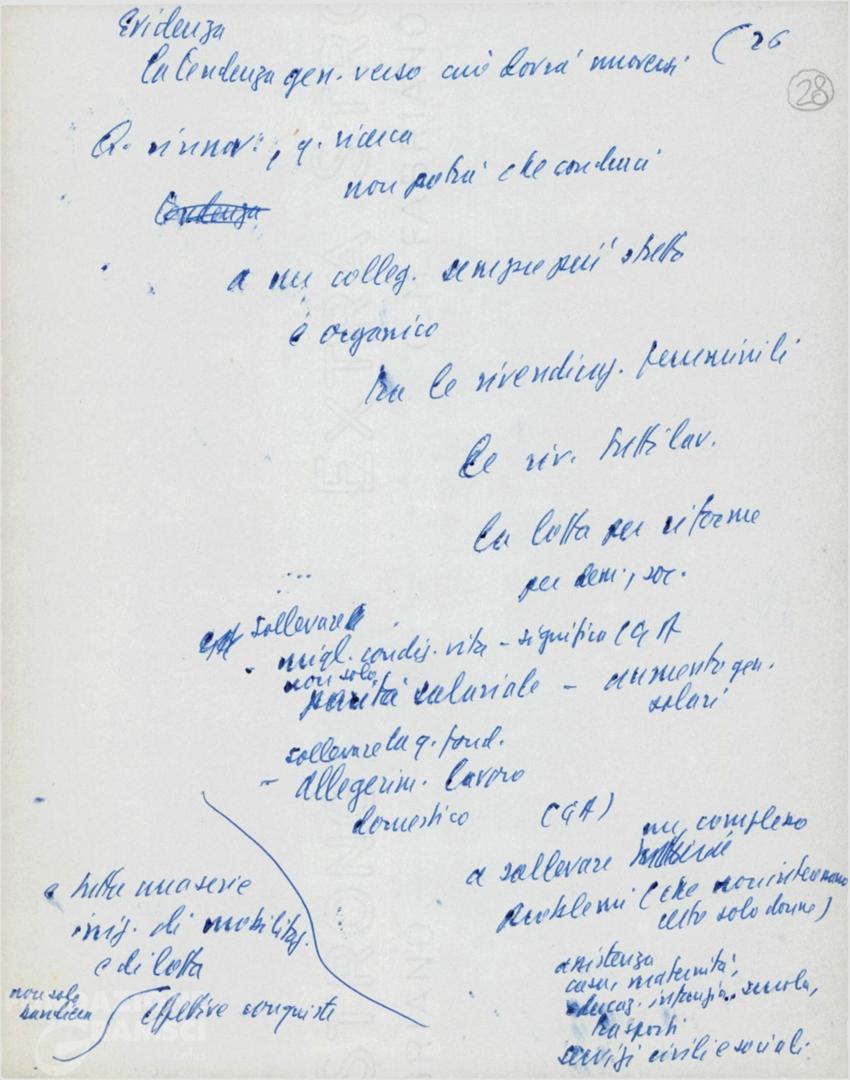 Evidenza
(26
28
la tendenza gen. verso cui dovrà muoversi
Q. rinnov., q. ricerca
non potrà che condurci
tendenza
a un colleg. sempre più stretto
e organico
tra le rivendicaz. femminili
le riv. tutti lav.
la lotta per riforme
per dem., soc.
...
sollevare
- migl. condiz. vita - significa (GA
non solo
parità salariale - aumento gen.
salari
sollevare la q. fond.
- allegerim. lavoro
domestico (GA)
un complesso
a sollevare
problemi (che non interessano
certo solo donne)
e tutta una serie
iniz. di mobilitaz.
e di lotta
non solo
bandiera
effettive conquiste
assistenza
casa, maternità,
educaz. infanzia.. scuola,
trasporti
servizi civili e sociali.